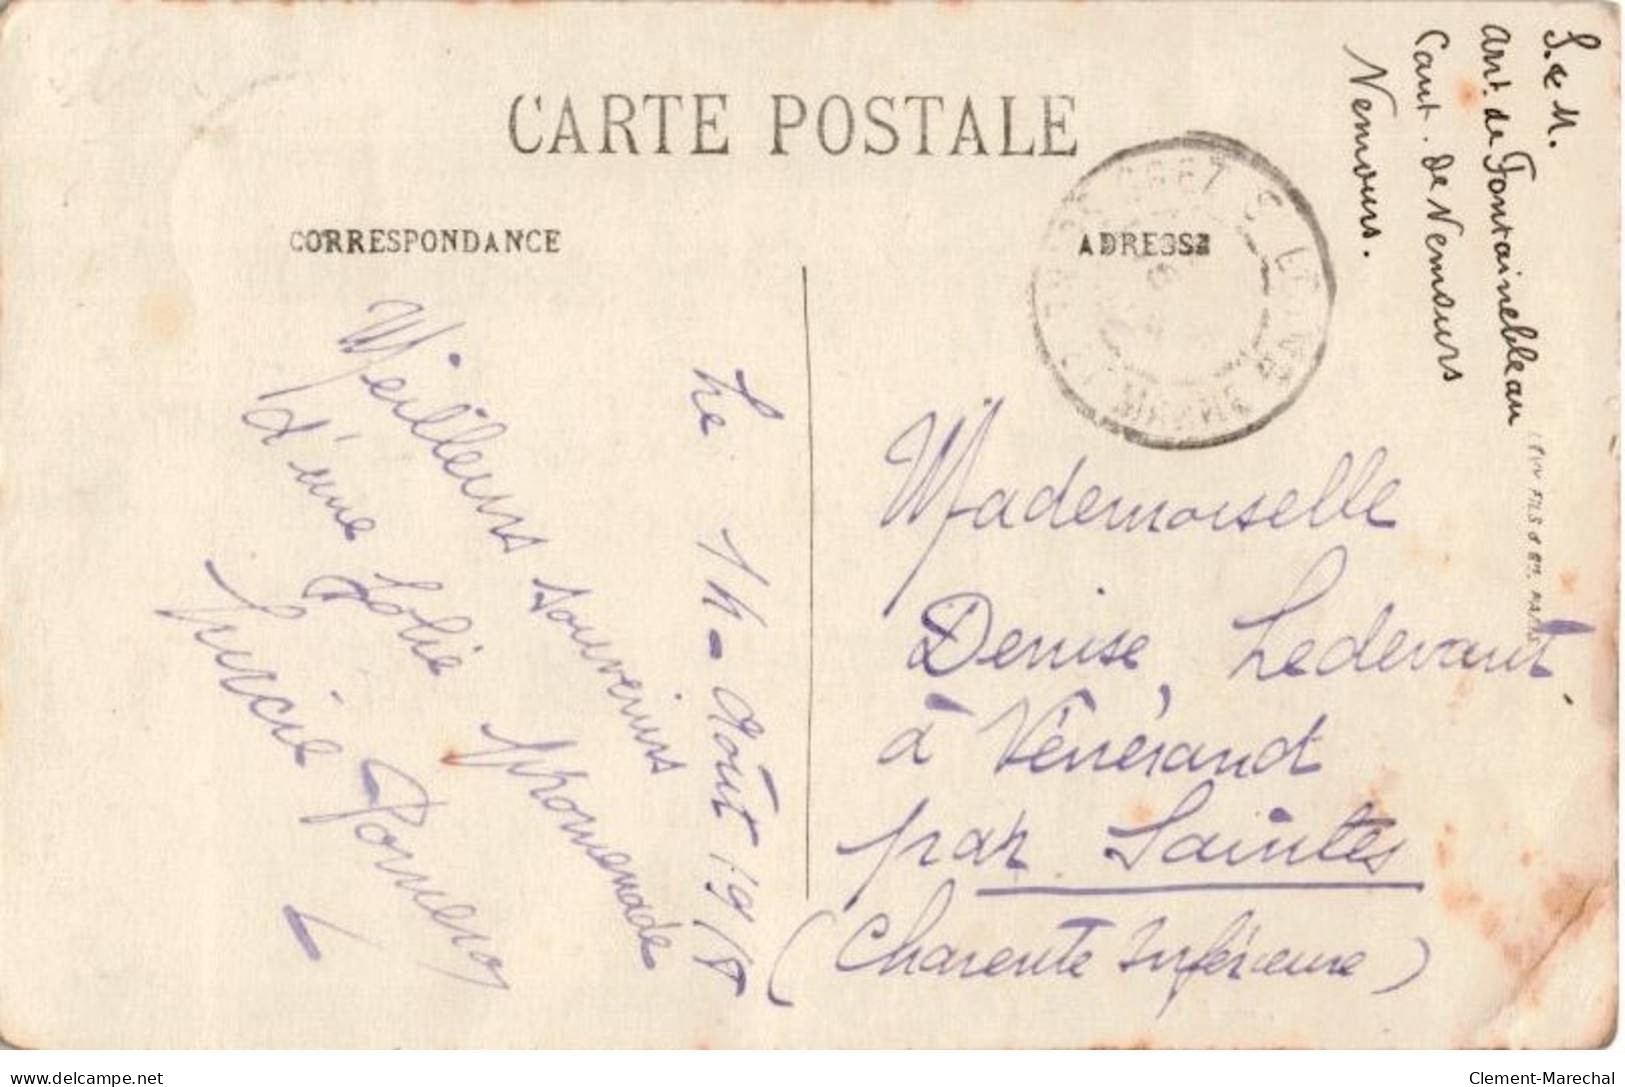 CARTE POSTALE
CORRESPONDANCE
ADRESSE
S. & M.
arr. de Fontainebleau
Cant. de Nemours
Nemours.
Le 14 - août 1918
Meilleurs souvenirs
d'une Jolie promenade
Lucie
Mademoiselle
Denise Ledevant
à Vénérand
par Saintes
(Charente Inférieure)
FILS & Cie. PARIS
GREZ S LOING
MARNE
Clement-Marechal